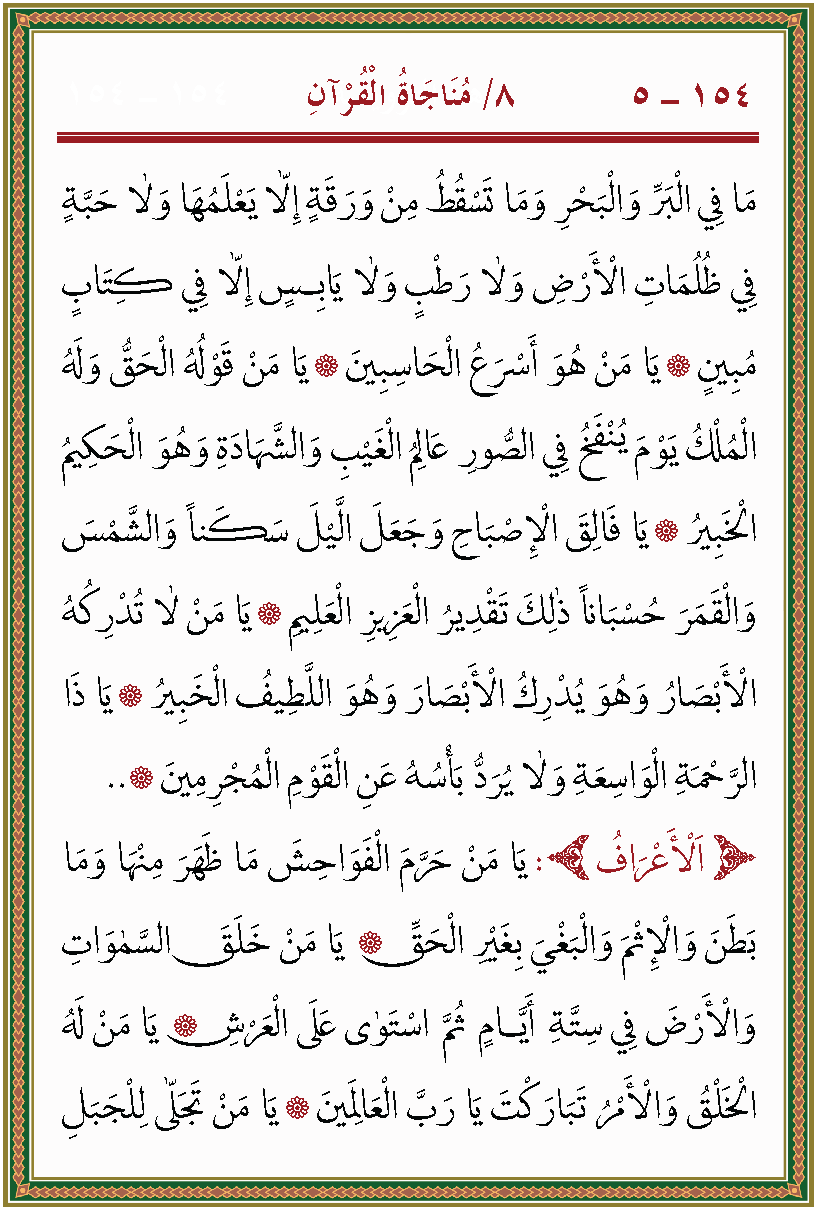 ١٥٤ ـ ٥ ٨/ مُنَاجَاةُ الْقُرْآنِ
مَا فِي الْبَرِّ وَالْبَحْرِ وَمَا تَسْقُطُ مِنْ وَرَقَةٍ إِلَّا يَعْلَمُهَا وَلَا حَبَّةٍ
فِي ظُلُمَاتِ الْأَرْضِ وَلَا رَطْبٍ وَلَا يَابِسٍ إِلَّا فِي كِتَابٍ
مُبِينٍ ۞ يَا مَنْ هُوَ أَسْرَعُ الْحَاسِبِينَ ۞ يَا مَنْ قَوْلُهُ الْحَقُّ وَلَهُ
الْمُلْكُ يَوْمَ يُنْفَخُ فِي الصُّورِ عَالِمُ الْغَيْبِ وَالشَّهَادَةِ وَهُوَ الْحَكِيمُ
الْخَبِيرُ ۞ يَا فَالِقَ الْإِصْبَاحِ وَجَعَلَ اللَّيْلَ سَكَناً وَالشَّمْسَ
وَالْقَمَرَ حُسْبَاناً ذٰلِكَ تَقْدِيرُ الْعَزِيزِ الْعَلِيمِ ۞ يَا مَنْ لَا تُدْرِكُهُ
الْأَبْصَارُ وَهُوَ يُدْرِكُ الْأَبْصَارَ وَهُوَ اللَّطِيفُ الْخَبِيرُ ۞ يَا ذَا
الرَّحْمَةِ الْوَاسِعَةِ وَلَا يُرَدُّ بَأْسُهُ عَنِ الْقَوْمِ الْمُجْرِمِينَ ۞..
﴿ اَلْأَعْرَافُ ﴾: يَا مَنْ حَرَّمَ الْفَوَاحِشَ مَا ظَهَرَ مِنْهَا وَمَا
بَطَنَ وَالْإِثْمَ وَالْبَغْيَ بِغَيْرِ الْحَقِّ ۞ يَا مَنْ خَلَقَ السَّمٰوَاتِ
وَالْأَرْضَ فِي سِتَّةِ أَيَّامٍ ثُمَّ اسْتَوٰى عَلَى الْعَرْشِ ۞ يَا مَنْ لَهُ
الْخَلْقُ وَالْأَمْرُ تَبَارَكْتَ يَا رَبَّ الْعَالَمِينَ ۞ يَا مَنْ تَجَلّٰى لِلْجَبَلِ